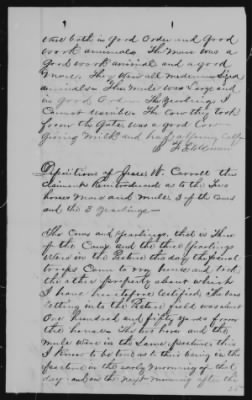 were both in good order and good
work animals The Mare was a
good work animal and a good
Mare. They were all medium sized
animals. The Mule was Large and
in good order. The yearlings I
cannot describe. The Cow they took
from the Gates was a good Cow
giving Milk and had a young calf
Depositions of Jesse W. Carroll the
Claimant Reintroduced as to the two
horses Mare and Mule 3 of the Cows
and the 3 yearlings—
The Cows and yearlings, that is three
of the Cows and the three yearlings
were in the Pasture the day the federal
troops Came to my house and took
the other property about which
I have heretofore testified. The bars
letting into the Pasture field was about
One hundred and fifty yards from
the house. The two horses and the
mule were in the same pasture this
I know to be true as to this being in the
pasture in the early morning of that
day and on the next morning after the